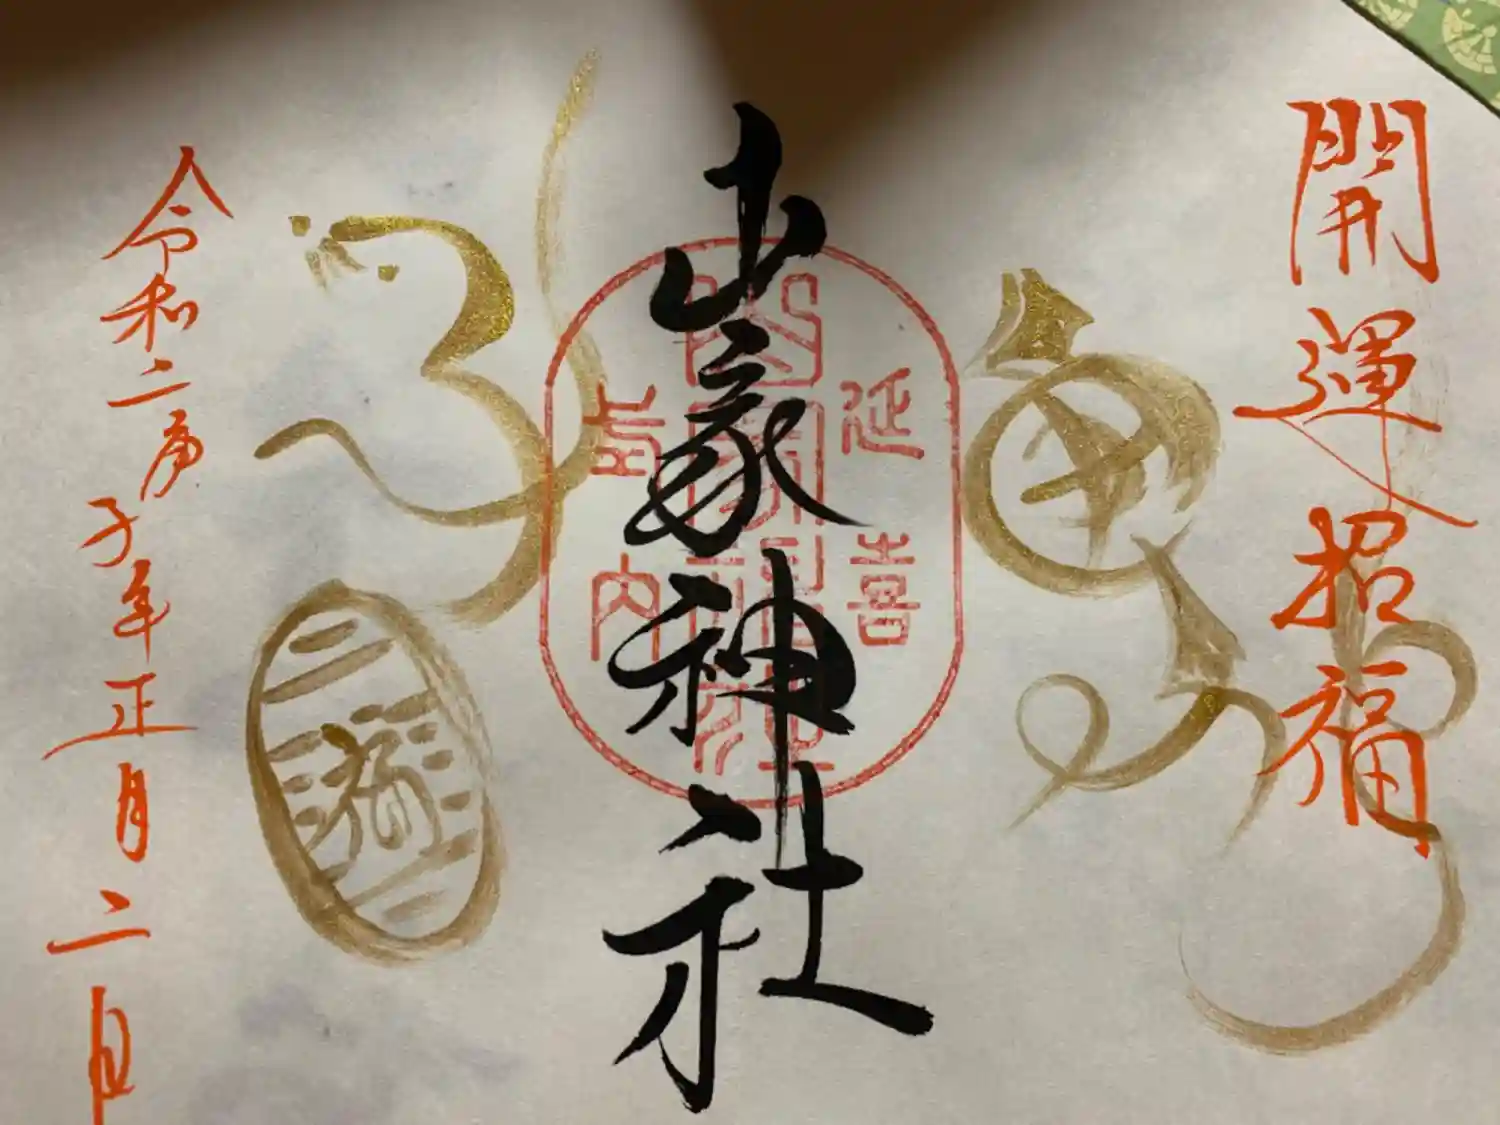 開運招福
山家神社
延喜
山家神社
内
令和二庚子年正月二日